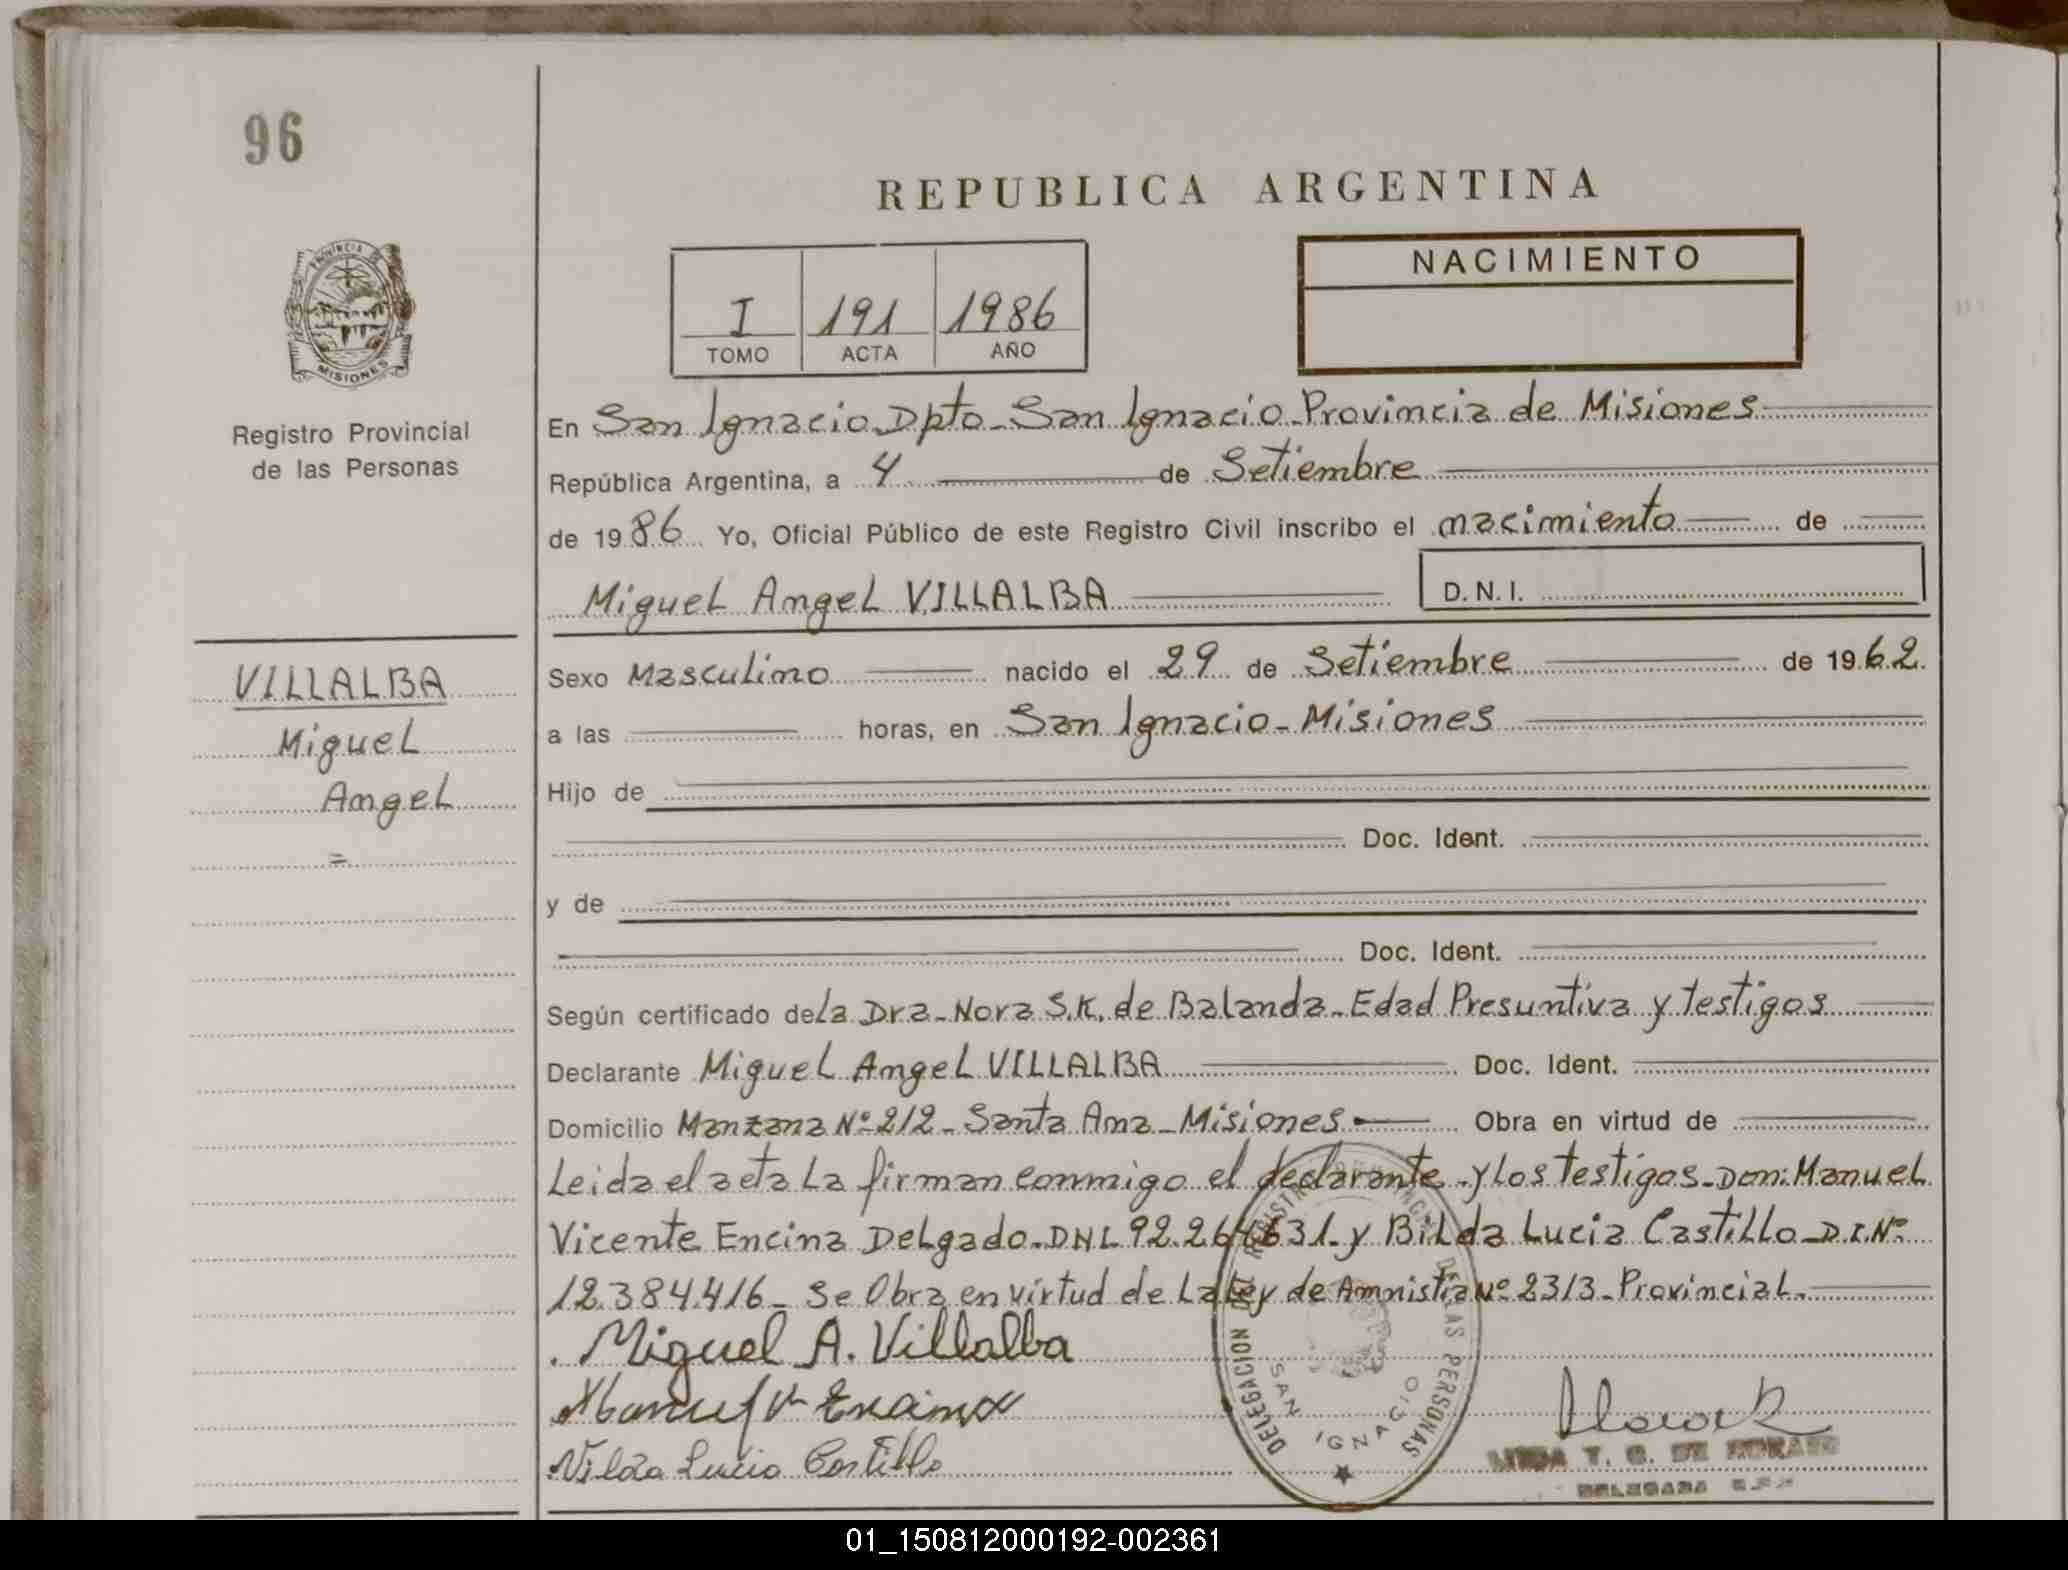 96
REPUBLICA ARGENTINA
PROVINCIA DE
MISIONES
Registro Provincial
de las Personas
I 191 1986
TOMO ACTA AÑO
NACIMIENTO
En San Ignacio Dpto - San Ignacio - Provincia de Misiones
República Argentina, a 4 de Setiembre
de 1986 Yo, Oficial Público de este Registro Civil inscribo el nacimiento de
Miguel Angel VILLALBA D.N.I.
VILLALBA
Miguel
Angel
=
Sexo Masculino nacido el 29 de Setiembre de 1962
a las horas, en San Ignacio - Misiones
Hijo de
Doc. Ident.
y de
Doc. Ident.
Según certificado de La Dra - Nora S.K. de Balanda - Edad Presuntiva y testigos
Declarante Miguel Angel VILLALBA Doc. Ident.
Domicilio Manzana Nº 212 - Santa Ana - Misiones Obra en virtud de
Leida el acta La firman conmigo el declarante - y Los testigos - Don: Manuel
Vicente Encina Delgado - DNI. 92.264631 - y Bilda Lucia Castillo - D.I.Nº
12.384.416 - Se Obra en virtud de La Ley de Amnistia Nº 2313 - Provincial.
Miguel A. Villalba
Manuel V Encina
Vilda Lucia Castillo
DELEGACION DEL REGISTRO PROVINCIAL DE LAS PERSONAS
SAN IGNACIO
T. G. DE
DELEGADA
01_150812000192-002361